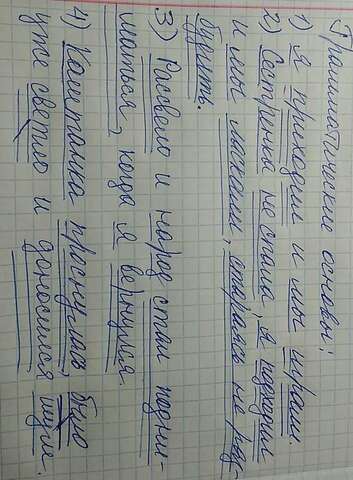 Грамматические основы:
1) Я приходил и мы играли.
2) Сестрёнка не спала, я подходил
и мы искали, стараясь не раз-
будить.
3) Рассвело и народ стал подни-
маться, когда я вернулся.
4) Каштанка проснулась, было
уже светло и доносился шум.